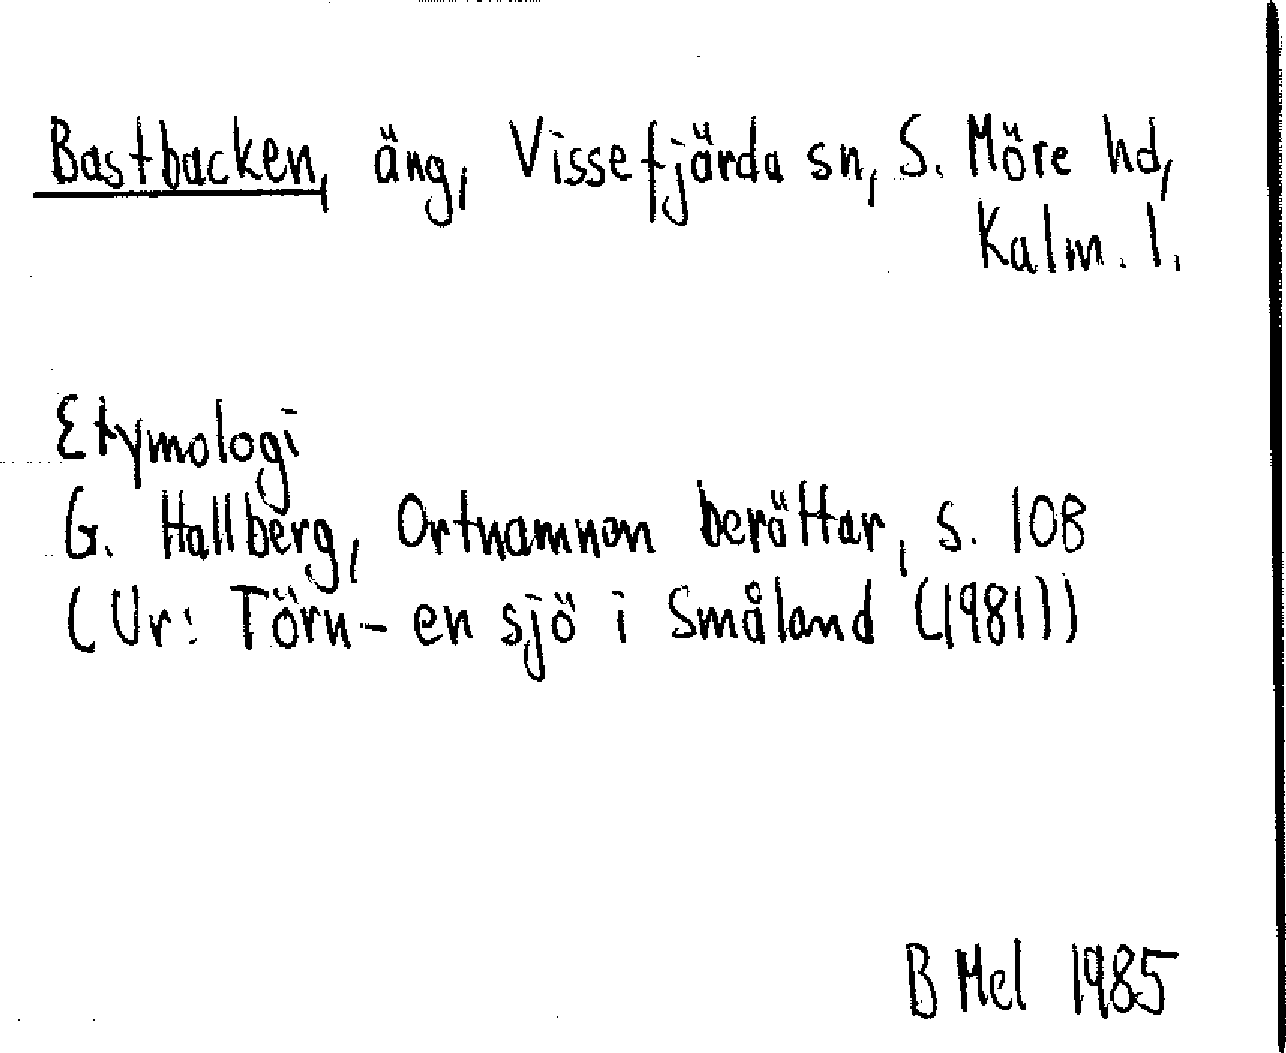 Bastbacken, äng, Vissefjärda sn, S. Möre hd,
Kalm. l.
Etymologi
G. Hallberg, Ortnamnen berättar, s. 108
(Ur: Törn - en sjö i Småland (1981))
B Mel 1985